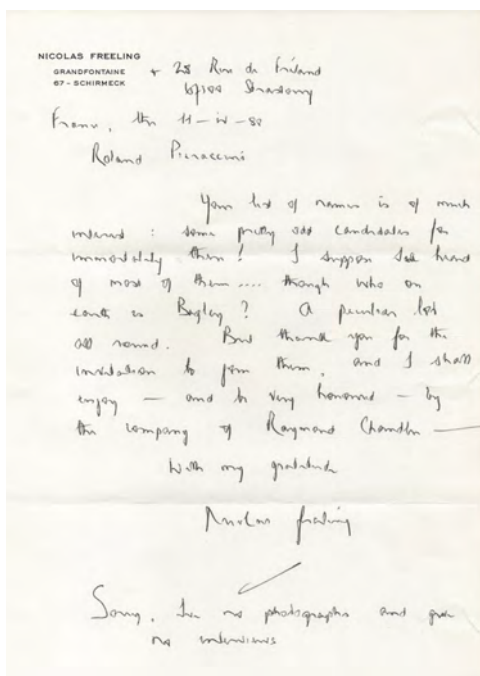 NICOLAS FREELING
GRANDFONTAINE + 28 Rue de
67 - SCHIRMECK Strasbourg
France, the 11-iv-88
Roland Pieraccini
Your list of names is of much
interest : some pretty odd candidates for
immortality there! I suppose I've heard
of most of them.... though who on
earth is Bagley? A peculiar lot
all round. But thank you for the
invitation to join them, and I shall
enjoy — and be very honoured — by
the company of Raymond Chandler —
With my gratitude
Nicolas Freeling
Sorry, I've no photographs and give
no interviews